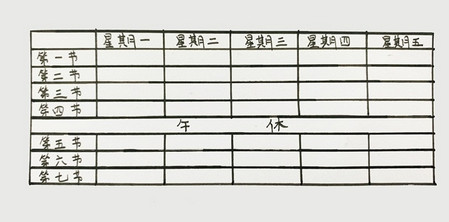 星期一 星期二 星期三 星期四 星期五
第一节
第二节
第三节
第四节
午 休
第五节
第六节
第七节